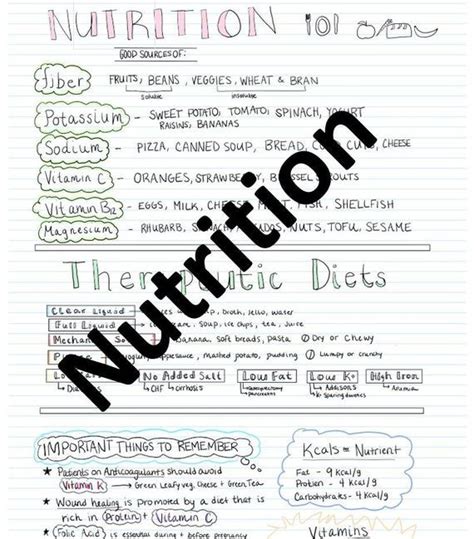 NUTRITION 101
GOOD SOURCES OF:
fiber FRUITS, BEANS, VEGGIES, WHEAT & BRAN
soluble insoluble
Potassium - SWEET POTATO, TOMATO, SPINACH, YOGURT
RAISINS, BANANAS
Sodium - PIZZA, CANNED SOUP, BREAD, COLD CUTS, CHEESE
Vitamin C - ORANGES, STRAWBERRY, BRUSSEL SPROUTS
Vitamin B12 - EGGS, MILK, CHEESE, MEAT, FISH, SHELLFISH
Magnesium - RHUBARB, SPINACH, NUTS, TOFU, SESAME
Nutrition
Therapeutic Diets
Clear Liquid broth, Jello, water
Full Liquid soup, ice chips, tea, juice
Mechanical Soft banana, soft breads, pasta Dry or Chewy
yogurt, applesauce, mashed potato, pudding Lumpy or crunchy
No Added Salt Low Fat Low K+ High Iron
CHF cirrhosis Addisons Anemia
pancreatitis K+ Sparing diuretics
IMPORTANT THINGS TO REMEMBER
★ Patients on Anticoagulants should avoid
Vitamin K → Green Leafy veg, Cheese + Green Tea
★ Wound healing is promoted by a diet that is
rich in Protein + Vitamin C
★ Folic Acid is essential during + before pregnancy
Kcals = Nutrient
Fat - 9 Kcal/g
Protien - 4 Kcal/g
Carbohydrates - 4 Kcal/g
Vitamins